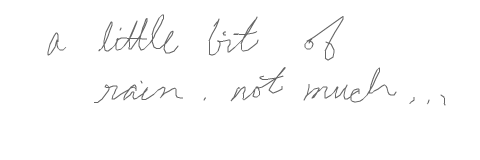 a little bit of
rain. not much...